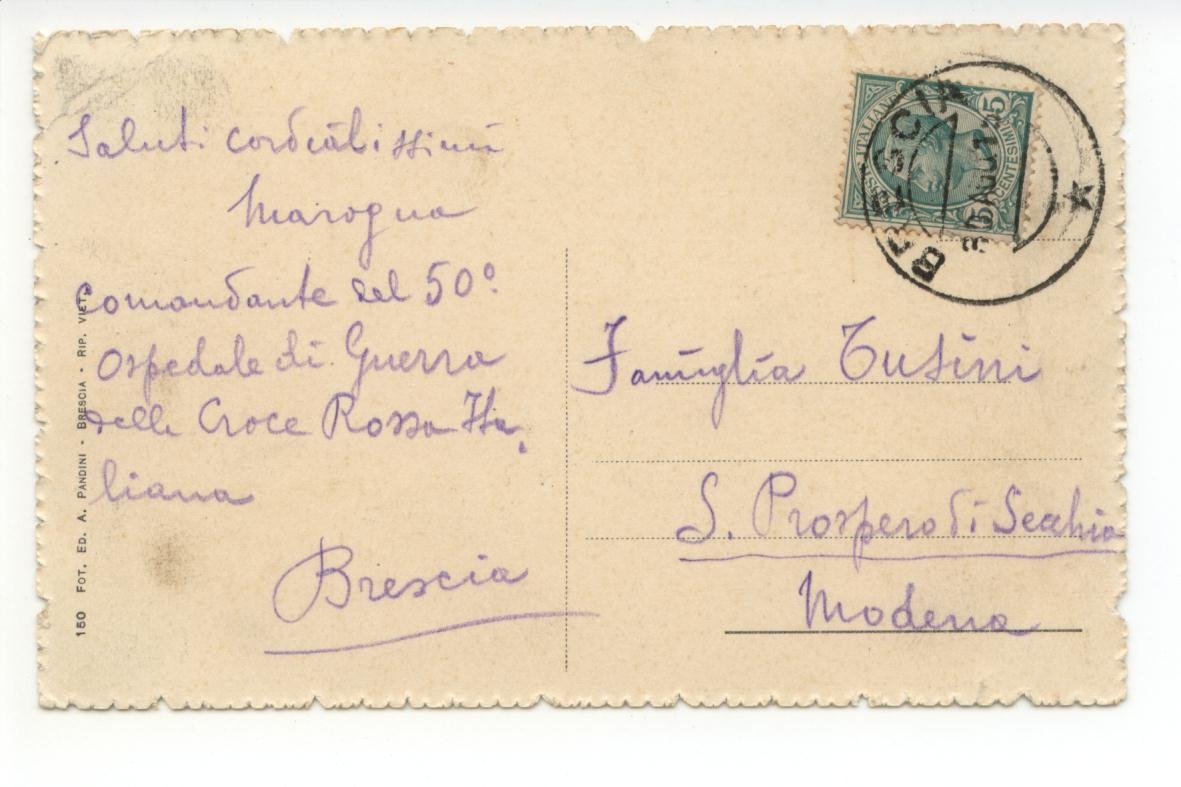 Saluti cordialissimi
Marogna
comandante del 50º
Ospedale di Guerra
della Croce Rossa Ita
liana
Brescia
Famiglia Tusini
S. Prospero di Secchia
Modena
POSTE ITALIANE
CENTESIMI 5
BRESCIA
150 FOT. ED. A. PANDINI - BRESCIA - RIP. VIET.